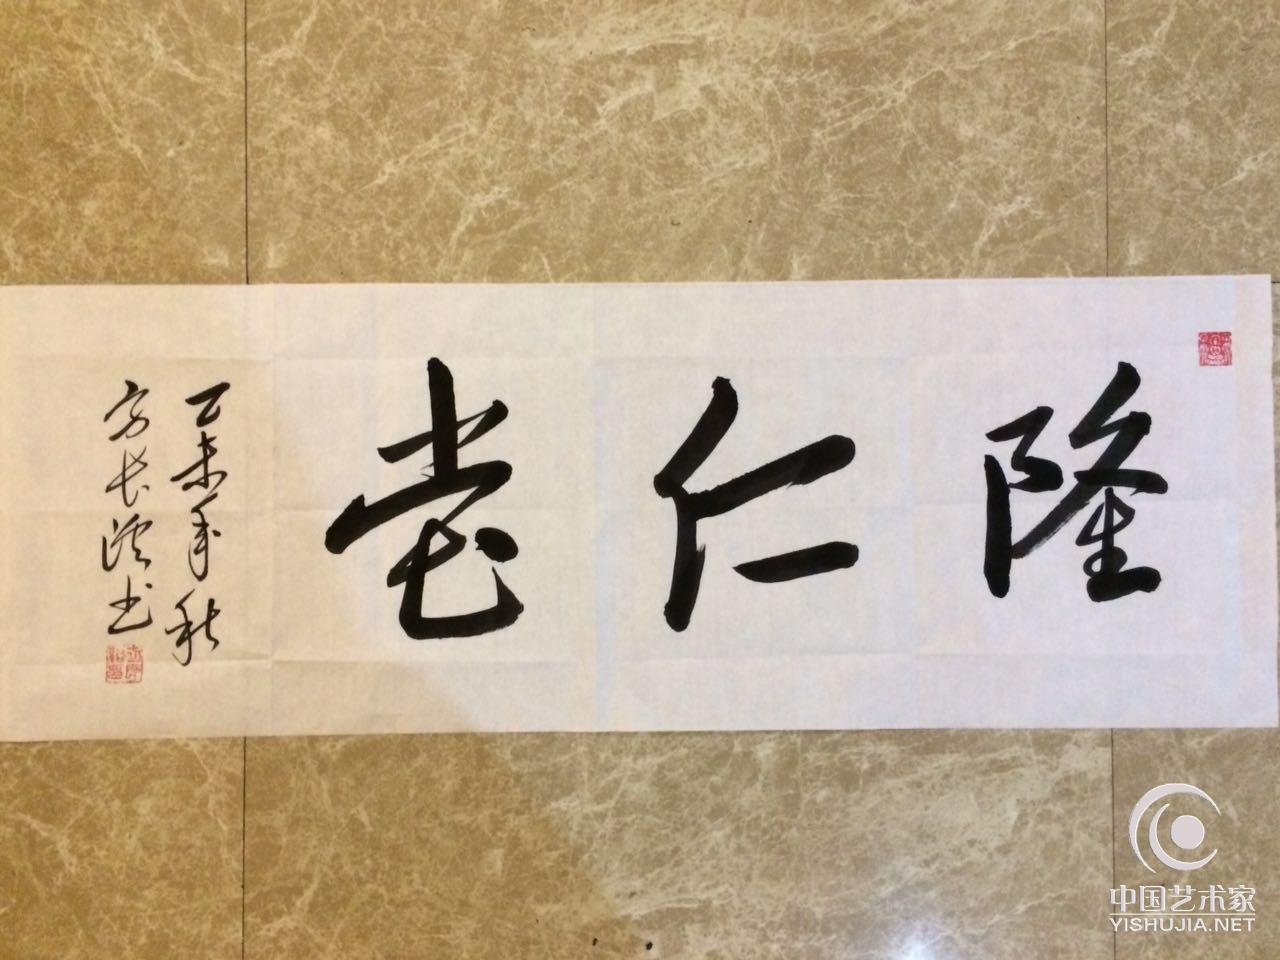 隆仁堂
乙未年秋
方长江书
中国艺术家
YISHUJIA.NET